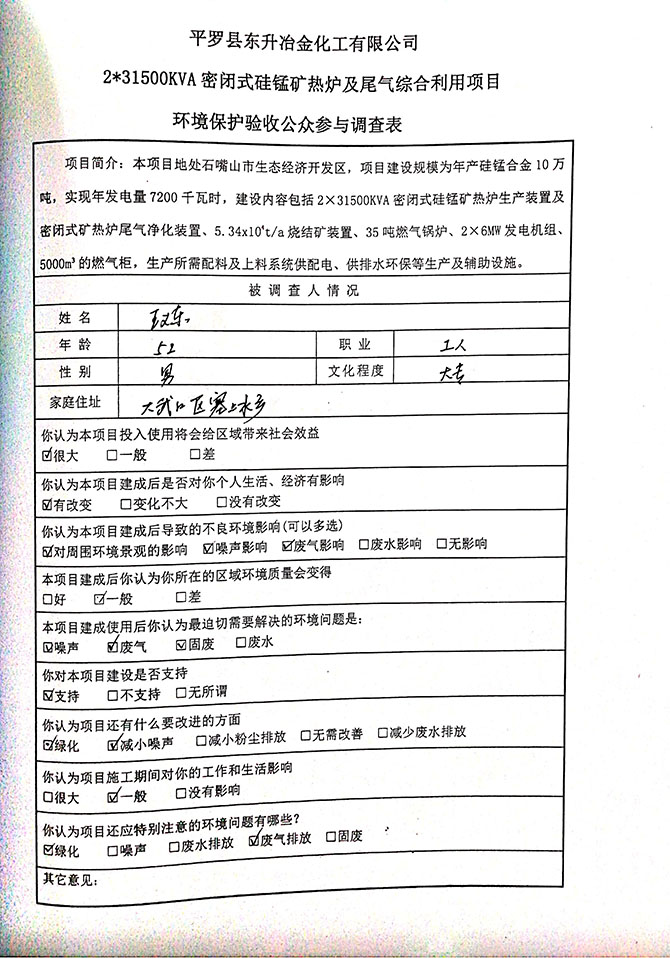 平罗县东升冶金化工有限公司
2*31500KVA 密闭式硅锰矿热炉及尾气综合利用项目
环境保护验收公众参与调查表
项目简介：本项目地处石嘴山市生态经济开发区，项目建设规模为年产硅锰合金 10 万
吨，实现年发电量 7200 千瓦时，建设内容包括 2×31500KVA 密闭式硅锰矿热炉生产装置及
密闭式矿热炉尾气净化装置、5.34x10⁴t/a 烧结矿装置、35 吨燃气锅炉、2×6MW 发电机组、
5000m³ 的燃气柜，生产所需配料及上料系统供配电、供排水环保等生产及辅助设施。
被调查人情况
姓名
年龄 52 职业 工人
性别 男 文化程度 大专
家庭住址 大武口区塞上水乡
你认为本项目投入使用将会给区域带来社会效益
☑很大 □一般 □差
你认为本项目建成后是否对你个人生活、经济有影响
☑有改变 □变化不大 □没有改变
你认为本项目建成后导致的不良环境影响(可以多选)
☑对周围环境景观的影响 ☑噪声影响 ☑废气影响 □废水影响 □无影响
本项目建成后你认为你所在的区域环境质量会变得
□好 ☑一般 □差
本项目建成使用后你认为最迫切需要解决的环境问题是：
☑噪声 ☑废气 ☑固废 □废水
你对本项目建设是否支持
☑支持 □不支持 □无所谓
你认为项目还有什么要改进的方面
☑绿化 ☑减小噪声 □减小粉尘排放 □无需改善 □减少废水排放
你认为项目施工期间对你的工作和生活影响
□很大 ☑一般 □没有影响
你认为项目还应特别注意的环境问题有哪些?
☑绿化 □噪声 □废水排放 ☑废气排放 □固废
其它意见：